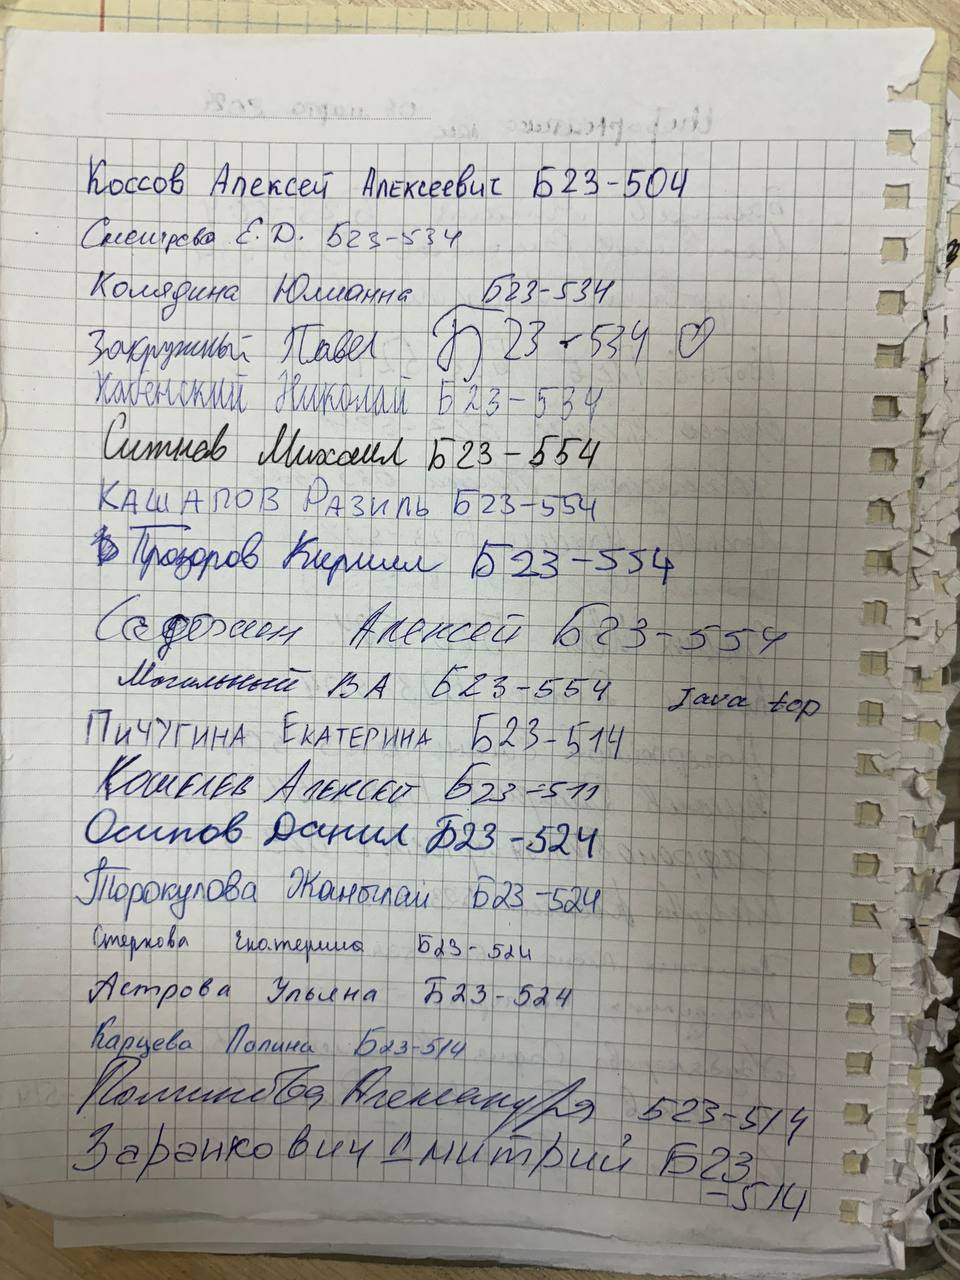 Коссов Алексей Алексеевич Б23-504
Е.Д. Б23-534
Колядина Юлианна Б23-534
Закружный Павел Б23-534 ♡
Хабенский Николай Б23-534
Ситнов Михаил Б23-554
КАШАПОВ РАЗИЛЬ Б23-554
Прозоров Кирилл Б23-554
Алексей Б23-554
Могильный ВА Б23-554 java top
ПИЧУГИНА ЕКАТЕРИНА Б23-514
Кошелев Алексей Б23-511
Осипов Данил Б23-524
Торокулова Жанылай Б23-524
Стеркова Екатерина Б23-524
Астрова Ульяна Б23-524
Карцева Полина Б23-514
Александра Б23-514
Заранкович Дмитрий Б23
-514